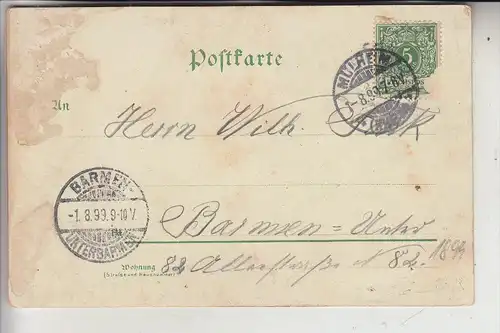 Postkarte
5
MÜLHEIM
1-8.99.7-8V.
An
Herrn Wilh.
BARMEN-
-1.8.99.9-10V.
UNTERBARMEN
Barmen-Unter
1899
Wohnung
(Straße und Hausnummer)
82 82